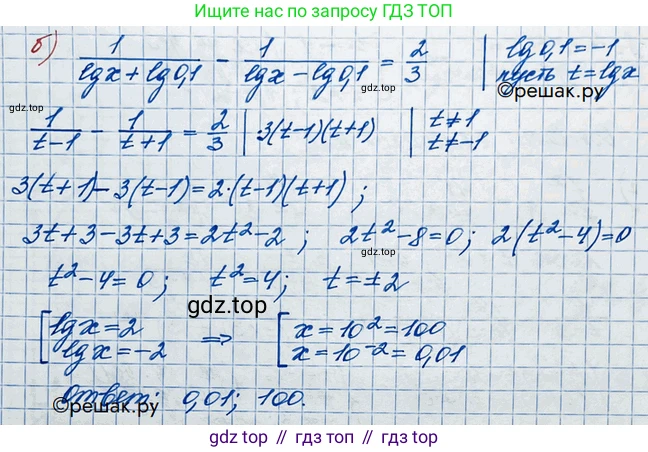 Ищите нас по запросу ГДЗ ТОП
б) 1/(lgx + lg0,1) - 1/(lgx - lg0,1) = 2/3 | lg0,1 = -1
gdz.top
пусть t = lgx
©решак.ру
1/(t-1) - 1/(t+1) = 2/3 | ·3(t-1)(t+1) | t≠1
t≠-1
3(t+1) - 3(t-1) = 2·(t-1)(t+1) ;
3t+3-3t+3 = 2t²-2 ; 2t²-8=0; 2(t²-4)=0
t²-4=0; t²=4; t=±2
gdz.top
[ lgx=2 ⇒ [ x=10²=100
lgx=-2 x=10⁻²=0,01
Ответ: 0,01; 100.
©решак.ру
gdz.top // гдз топ // gdz.top